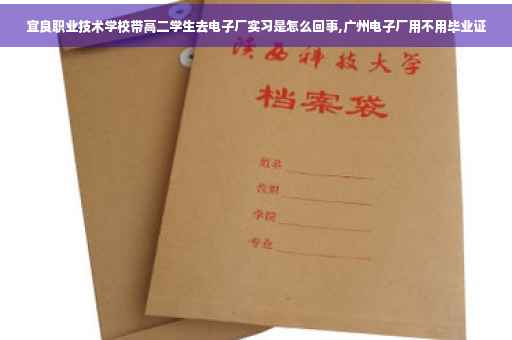 宜良职业技术学校带高二学生去电子厂实习是怎么回事,广州电子厂用不用毕业证
陕西科技大学
档案袋
姓名
学院
专业